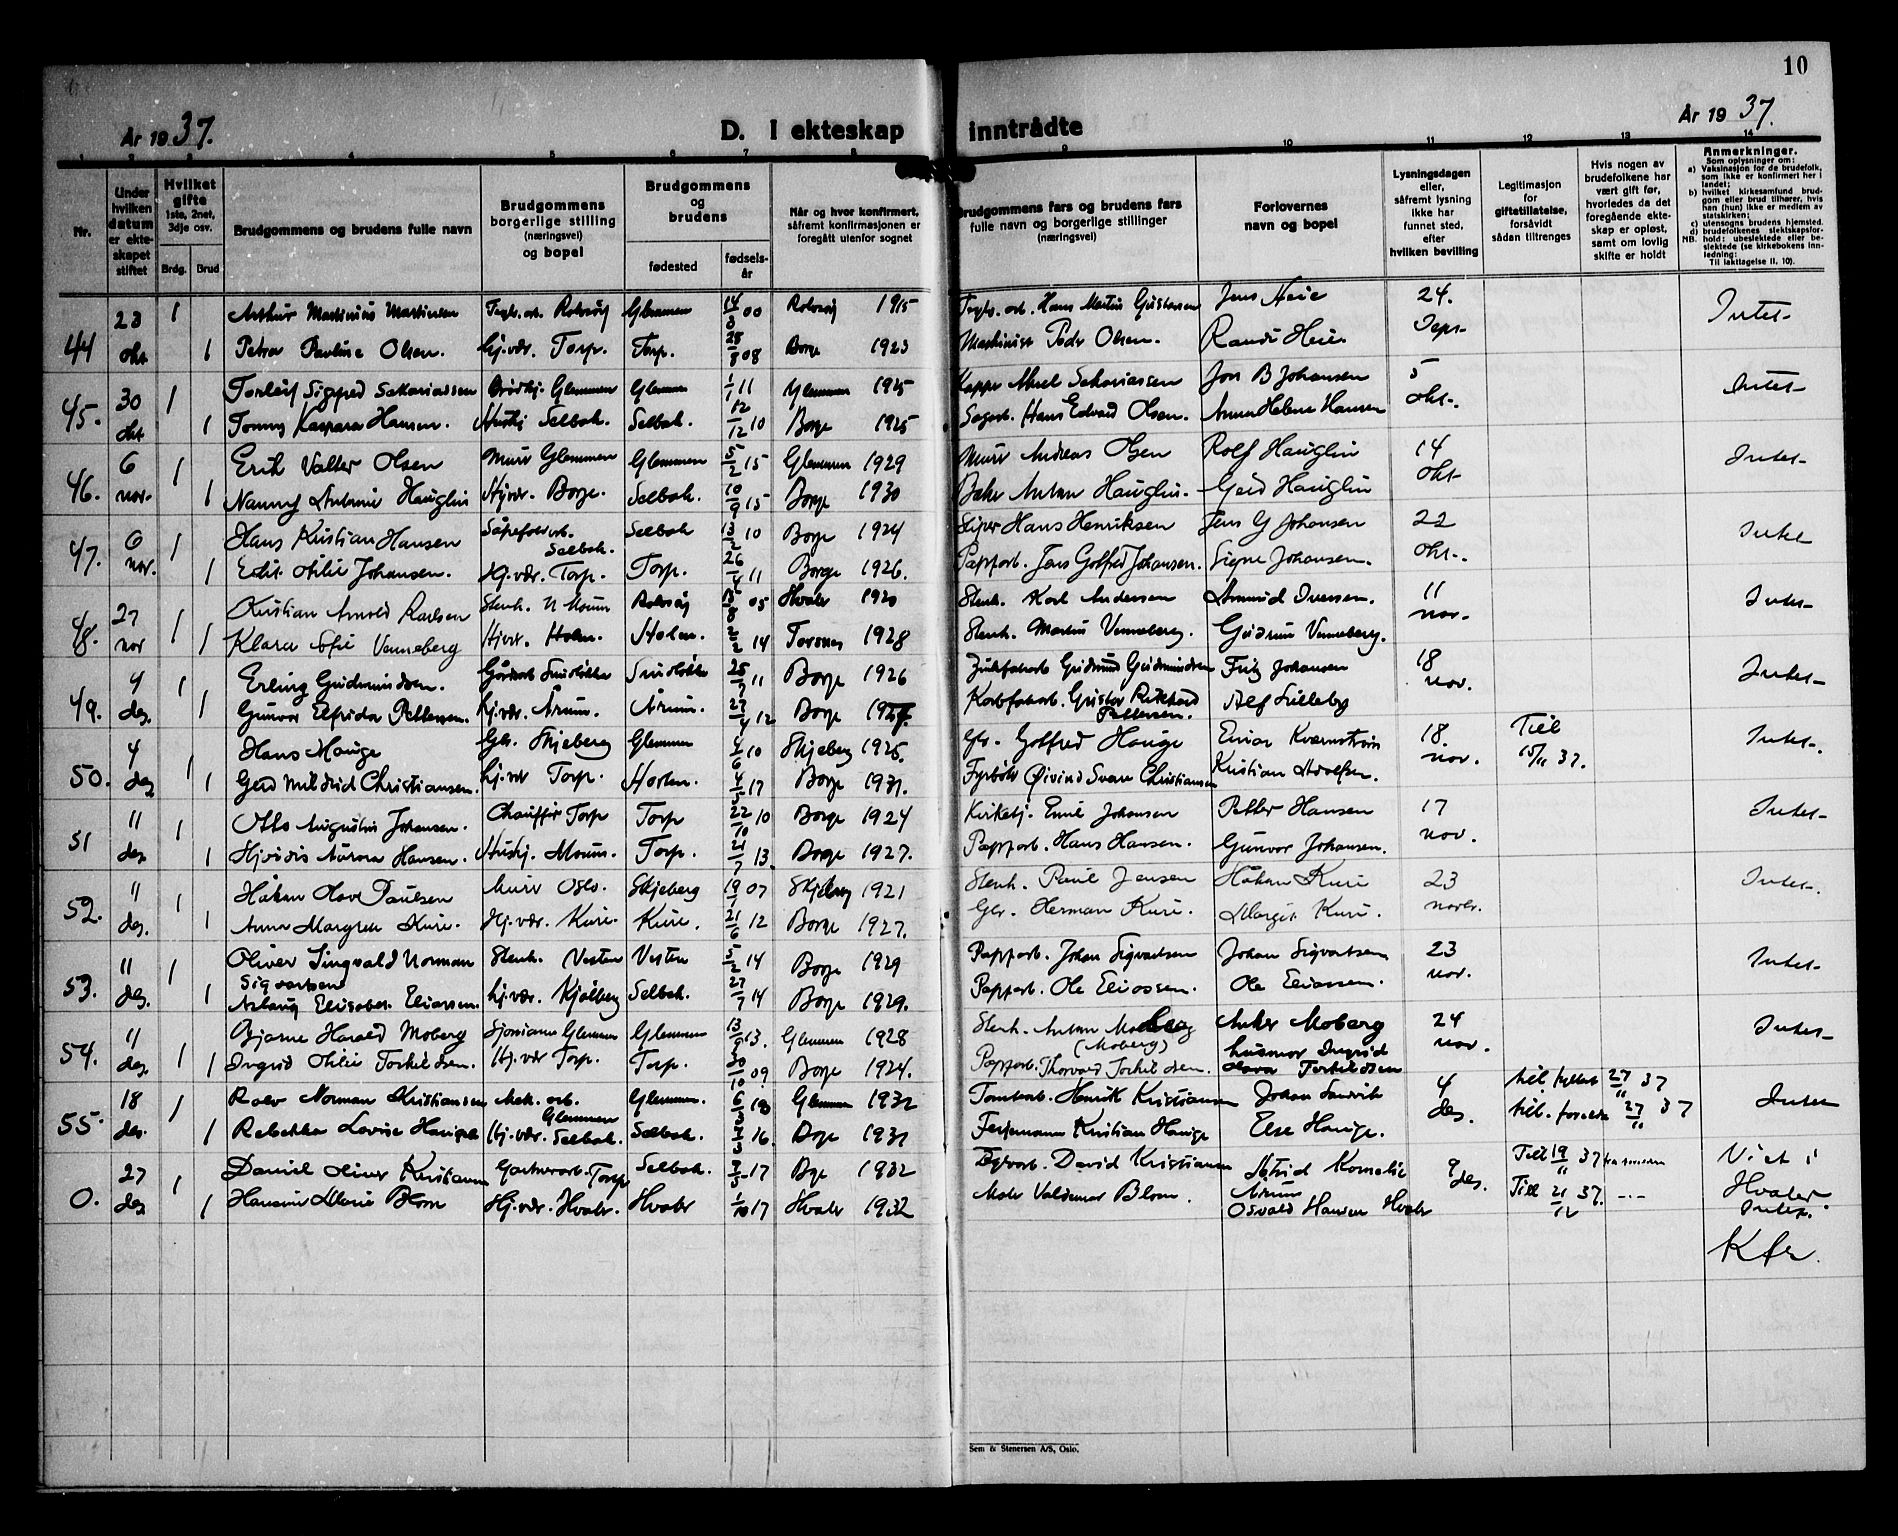 10
År 1937.
D. I ekteskap inntrådte
År 1937.
1 2 3 4 5 6 7 8 9 10 11 12 13 14
Nr.
Under hvilken datum er ekteskapet stiftet
Hvilket gifte 1ste, 2net, 3dje osv.
Brdg. Brud
Brudgommens og brudens fulle navn
Brudgommens borgerlige stilling (næringsvei) og bopel
Brudgommens og brudens
fødested
fødselsår
Når og hvor konfirmert, såfremt konfirmasjonen er foregått utenfor sognet
Brudgommens fars og brudens fars fulle navn og borgerlige stillinger (næringsvei)
Forlovernes navn og bopel
Lysningsdagen eller, såfremt lysning ikke har funnet sted, efter hvilken bevilling
Legitimasjon for giftetillatelse, forsåvidt sådan tiltrenges
Hvis nogen av brudefolkene har vært gift før, hvorledes da det foregående ekteskap er opløst, samt om lovlig skifte er holdt
Anmerkninger.
Som oplysninger om:
a) Vaksinasjon for de brudefolk, som ikke er konfirmert her i landet;
b) hvilket kirkesamfund brudgom eller brud tilhører, hvis han (hun) ikke er medlem av statskirken;
c) utensogns brudens hjemsted.
d) brudefolkenes slektskapsforhold: ubeslektede eller beslektede (se kirkebokens innledning:
NB.
Til iakttagelse II. 10).
23 1 Arthur Martinius Martinsen Rolvsøy Glemmen 00 Rolvsøy 1915 Hans Martin Gustavsen Jens Heie 24. Intet-
44 okt 1 Petra Pauline Olsen. Hj.vær. Torp. Torp. 28/8 08 Borge 1923 Maskinist Peder Olsen. Randi Heier Sept-
45. 30 1 Torleif Sigfred Sakariassen Glemmen Glemmen 1/1 11 Glemmen 1925 Aksel Sakariassen Jon B Johansen 5 Intet-
okt 1 Tommy Kaspara Hansen. Hushj Selbak. Selbak. 12/12 10 Borge 1925 Sagarb. Hans Edvard Olsen. Anna Helene Hansen okt-.
6 1 Erik Valter Olsen Murer Glemmen Glemmen 5/2 15 Glemmen 1929 Murer Andreas Olsen Rolf Hauglin 14 Intet-
46. nov- 1 Nanny Antonie Hauglin Hj.vær. Borge. Selbak. 10/9 15 Borge 1930 Baker Anton Hauglin. Gerd Hauglin okt-
47. 6 1 Hans Kristian Hansen Såpefabarb. Selbak. Selbak 13/2 10 Borge 1924 Hans Henriksen Jens G Johansen 22 Intet
nov. 1 Edit Otilie Johansen. Hj.vær. Torp. Torp. 26/4 11 Borge 1926. Papparb. Jens Gotfred Johansen. Signe Johansen. okt-.
27 1 Kristian Arnold Karlsen Stenh. N Moum Rolvsøy 05 Hvaler 1920 Stenh. Karl Andersen Iversen. 11 Intet-
48. nov 1 Klara Sofie Venneberg Hj.vær. Holm. Holm. 14 Torsnes 1928 Stenh. Martin Venneberg. Gudrun Venneberg. nov-.
4 1 Erling Gudmundsen. 25/7 11 Borge 1926 Gudmund Gudmundsen Fritz Johansen 18 Intet-
49. des. 1 Gunvor Elfrida Pettersen. hj.vær. Årum. Årum. 27/4 12 Borge Gustav Rikhard Pettersen. Alf Lilleby nov.
4 1 Hans Hauge Gbr. Skjeberg Glemmen 4/6 10 Skjeberg 1925. Gbr. Gotfred Hauge Einar Kvernstrøm 18. Till Intet-.
50. des 1 Gerd Mildrid Christiansen. hj.vær Torp. Horten. 4/5 17 Borge 1931. Fyrbøter Øivind Svare Christiansen Kristian Adolfsen. nov. 15/11 37.
11 1 Otto Augustin Johansen. Chauffør Torp Torp 22/10 10 Borge 1924 Kirketj. Emil Johansen Petter Hansen 17 Intet-
51 des 1 Hjørdis Aurora Hansen. Hushj. Moum. Torp. 21/7 13. Borge 1927. Papparb. Hans Hansen. Gunvor Johansen. nov.
11 1 Håkon Olav Paulsen Murer Oslo. Skjeberg 19/1 07 Skjeberg 1921 Stenh. Paul Jensen Håkon Kure 23 Intet-.
52. des. 1 Anna Margrete Kure. Hj.vær. Kure. Kure. 21/6 12 Borge 1927. Gbr. Herman Kure. Margit Kure. novbr.
11 1 Oliver Singvald Norman Sigvartsen Stenh. Vesten Vesten 5/2 14 Borge 1929 Papparb. Johan Sigvartsen Johan Sigvartsen 23 Intet-
53. des. 1 Aslaug Elisabet Eliassen. hj.vær. Kjølberg Selbak. 27/7 14 Borge 1929. Papparb. Ole Eliassen. Ole Eliassen. nov.
11 1 Bjarne Harald Moberg Sjømann Glemmen Glemmen 13/9 13. Glemmen 1928 Stenh. Anton Moberg (Moberg) Anker Moberg 24 Intet-
54. des. 1 Ingrid Otilie Torkildsen. Hj.vær Torp. Torp. 30/10 09 Borge 1924. Papparb. Thorvald Torkildsen. husmor Ingrid Torkildsen nov.
18 1 Rolv Norman Kristiansen Mek. arb. Glemmen Glemmen. Glemmen 1932 Tomtearb. Henrik Kristiansen Johan 4 till. 27/11 37 Intet
55. des. 1 Rebekka Lovise Hauge Hj.vær. Selbak. Selbak. 16. Borge 1931 Kristian Hauge Else Hauge. des. till. 27/11 37
27 1 Daniel Oliver Kristiansen Gartnerarb. Torp Selbak. 17 Bge 1932 David Kristiansen Astrid Kornelie Årum 9 Till 19/11 37 Viet i
0. des 1 Marie Blom Hj.vær. Hvaler. Hvaler 1/10 17 Hvaler 1932 Valdemar Blom. Osvald Hansen Hvaler des. Till 21/12 37. -.- Hvaler
Intet.
Kfr.
Sem & Stenersen A/S, Oslo.